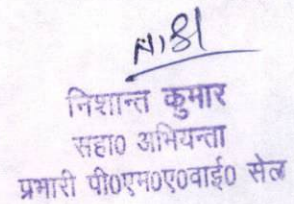 निशान्त कुमार
सहा0 अभियन्ता
प्रभारी पी0एम0ए0वाई0 सेल